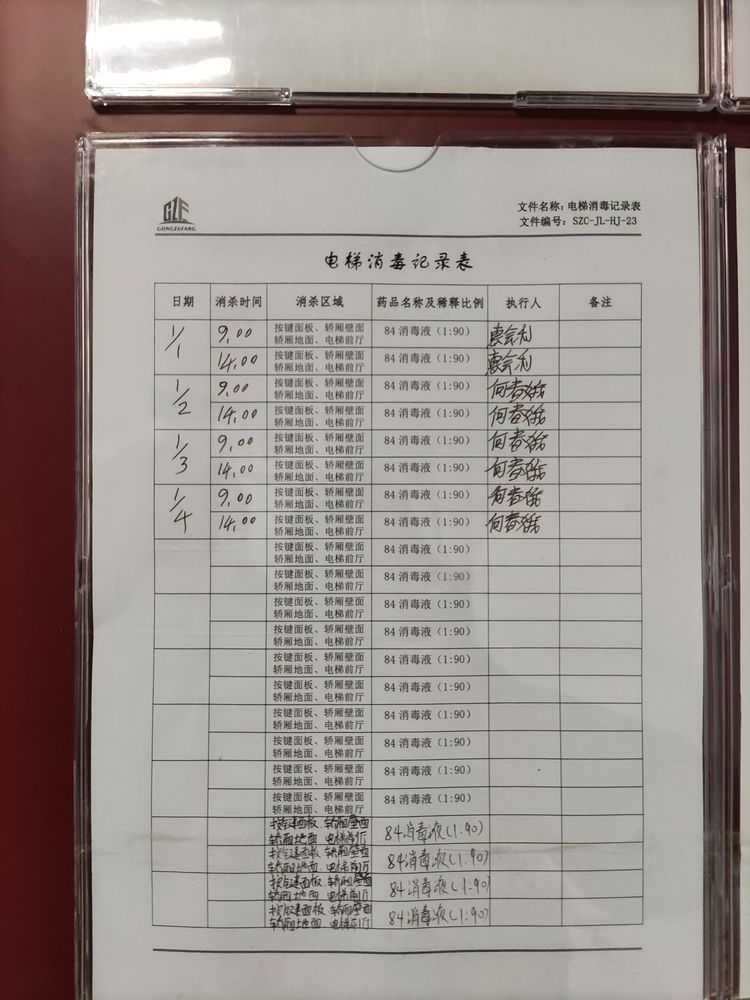 GZF
GONGZUFANG
文件名称：电梯消毒记录表
文件编号：SZC-JL-HJ-23
电梯消毒记录表
日期 消杀时间 消杀区域 药品名称及稀释比例 执行人 备注
1/1 9.00 按键面板、轿厢壁面 84 消毒液（1:90）
轿厢地面、电梯前厅
14.00 按键面板、轿厢壁面 84 消毒液（1:90）
轿厢地面、电梯前厅
1/2 9.00 按键面板、轿厢壁面 84 消毒液（1:90）
轿厢地面、电梯前厅
14.00 按键面板、轿厢壁面 84 消毒液（1:90）
轿厢地面、电梯前厅
1/3 9.00 按键面板、轿厢壁面 84 消毒液（1:90）
轿厢地面、电梯前厅
14.00 按键面板、轿厢壁面 84 消毒液（1:90）
轿厢地面、电梯前厅
1/4 9.00 按键面板、轿厢壁面 84 消毒液（1:90）
轿厢地面、电梯前厅
14.00 按键面板、轿厢壁面 84 消毒液（1:90）
轿厢地面、电梯前厅
按键面板、轿厢壁面 84 消毒液（1:90）
轿厢地面、电梯前厅
按键面板、轿厢壁面 84 消毒液（1:90）
轿厢地面、电梯前厅
按键面板、轿厢壁面 84 消毒液（1:90）
轿厢地面、电梯前厅
按键面板、轿厢壁面 84 消毒液（1:90）
轿厢地面、电梯前厅
按键面板、轿厢壁面 84 消毒液（1:90）
轿厢地面、电梯前厅
按键面板、轿厢壁面 84 消毒液（1:90）
轿厢地面、电梯前厅
按键面板、轿厢壁面 84 消毒液（1:90）
轿厢地面、电梯前厅
按键面板、轿厢壁面 84 消毒液（1:90）
轿厢地面、电梯前厅
按键面板、轿厢壁面 84 消毒液（1:90）
轿厢地面、电梯前厅
按键面板、轿厢壁面 84 消毒液（1:90）
轿厢地面、电梯前厅
按键面板 轿厢壁面 84消毒液(1:90)
轿厢地面 电梯前厅
按键面板 轿厢壁面 84消毒液(1:90)
轿厢地面 电梯前厅
按键面板 轿厢壁面 84消毒液(1:90)
轿厢地面 电梯前厅
按键面板 轿厢壁面 84消毒液(1:90)
轿厢地面 电梯前厅